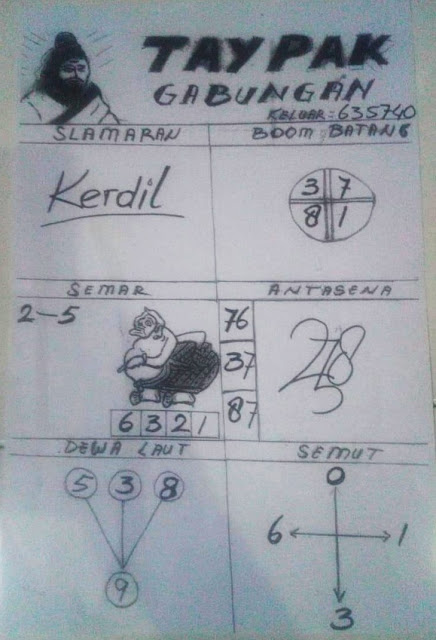 TAYPAK
GABUNGAN
KELUAR: 635740
SLAMARAN
BOOM BATANG
Kerdil
3 7
8 1
SEMAR
ANTASENA
2-5
76
37
87
6 3 2 1
DEWA LAUT
SEMUT
5 3 8
9
0
6 1
3